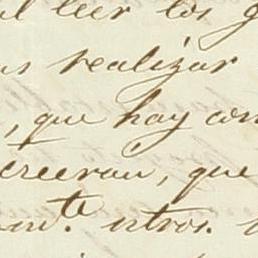 al leer los g
us realizar
, que hay con
creeran, que
on.te otros.